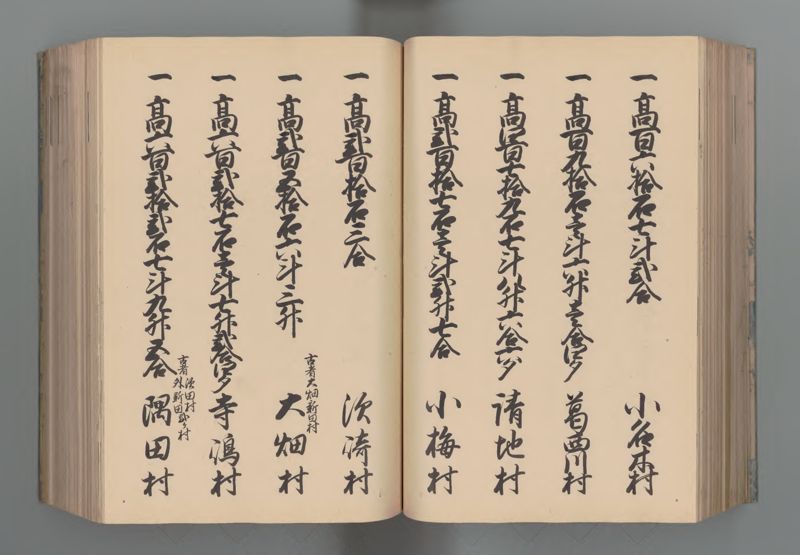 一 高百六拾石七斗弐合 小谷木村
一 高百九拾石壱斗六升壱合 葛西川村
一 高 百 拾九石七斗 升六合 請地村
一 高弐百拾七石壱斗弐升七合 小梅村
一 高弐百拾石三合 須崎村
一 高弐百五拾石六斗三升 古者大畑新田村 大畑村
一 高六百弐拾七石壱斗七升弐合 寺嶋村
一 高六百弐拾弐石七斗九升五合 古者須田村 外新田 村 隅田村